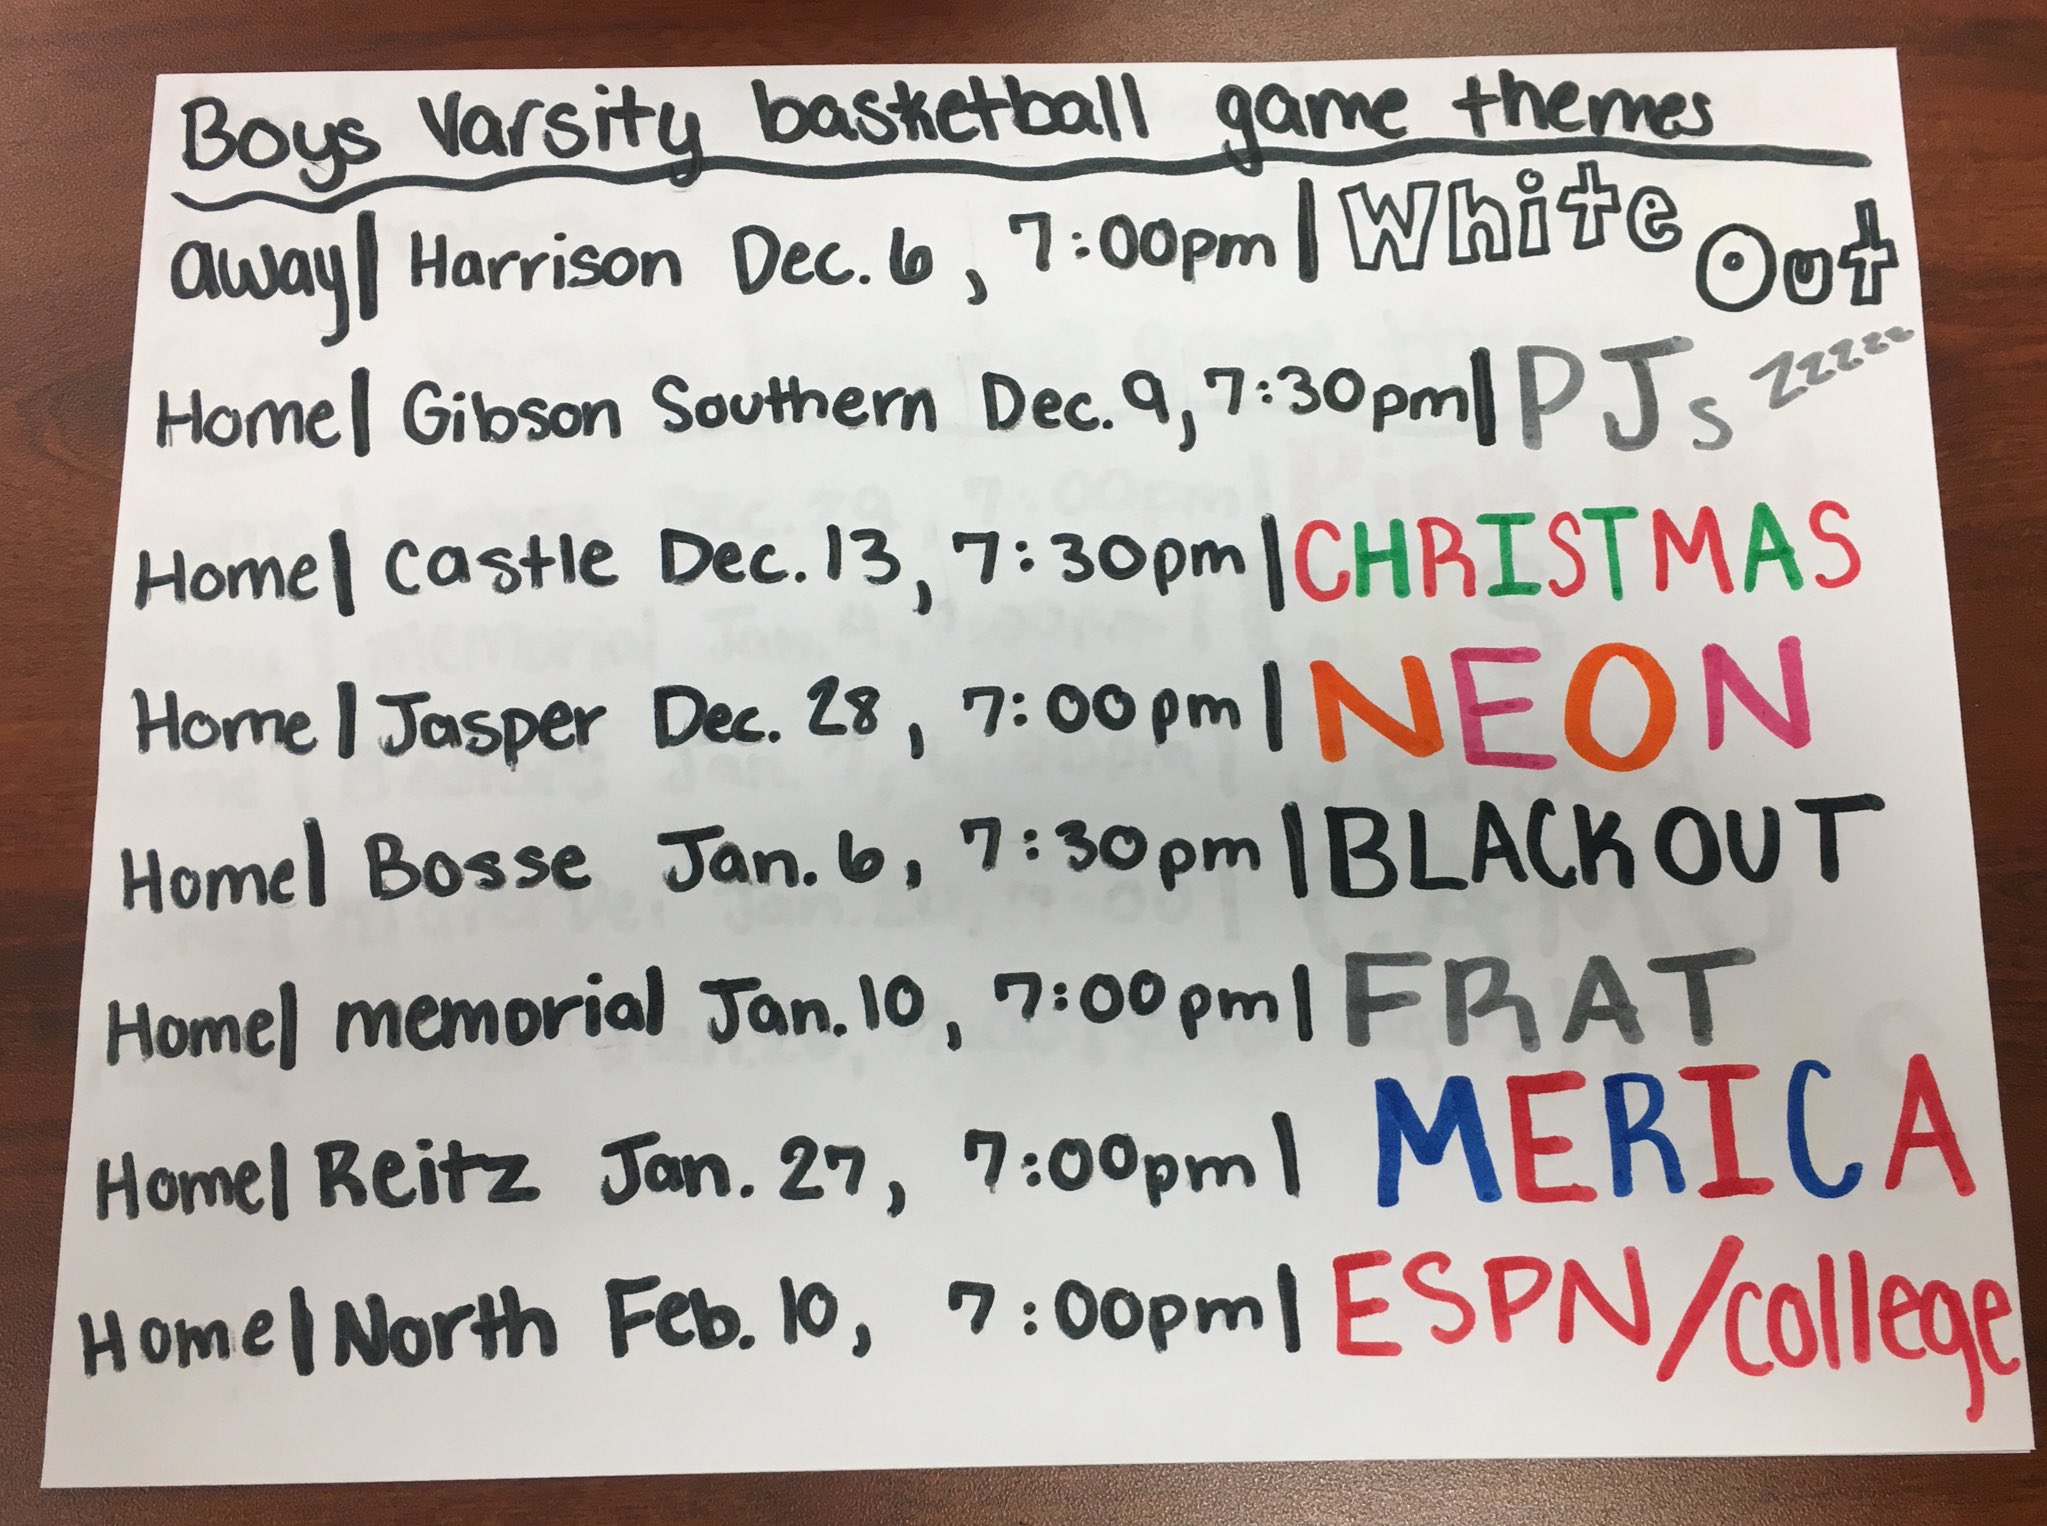 Boys Varsity basketball game themes
away| Harrison Dec. 6, 7:00pm | White Out
Home| Gibson Southern Dec. 9, 7:30pm| PJs zzzzz
Home| Castle Dec. 13, 7:30pm | CHRISTMAS
Home | Jasper Dec. 28, 7:00pm | NEON
Home| Bosse Jan. 6, 7:30pm | BLACKOUT
Home| memorial Jan. 10, 7:00pm | FRAT
Home| Reitz Jan. 27, 7:00pm | MERICA
Home | North Feb. 10, 7:00pm | ESPN/college